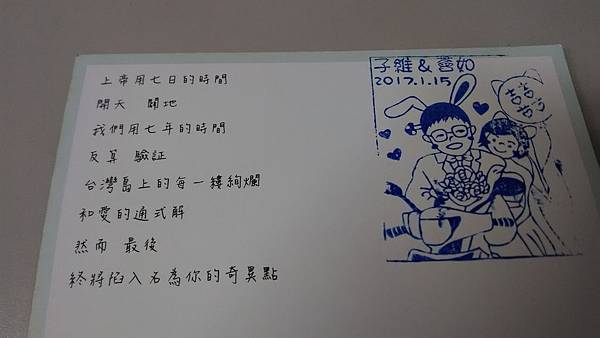 上帝用七日的時間
開天 闢地
我們用七年的時間
反覆 驗証
台灣島上的每一縷絢爛
和愛的通式解
然而 最後
終將陷入名為你的奇異點
子維 & 蕓如
2017.1.15
囍